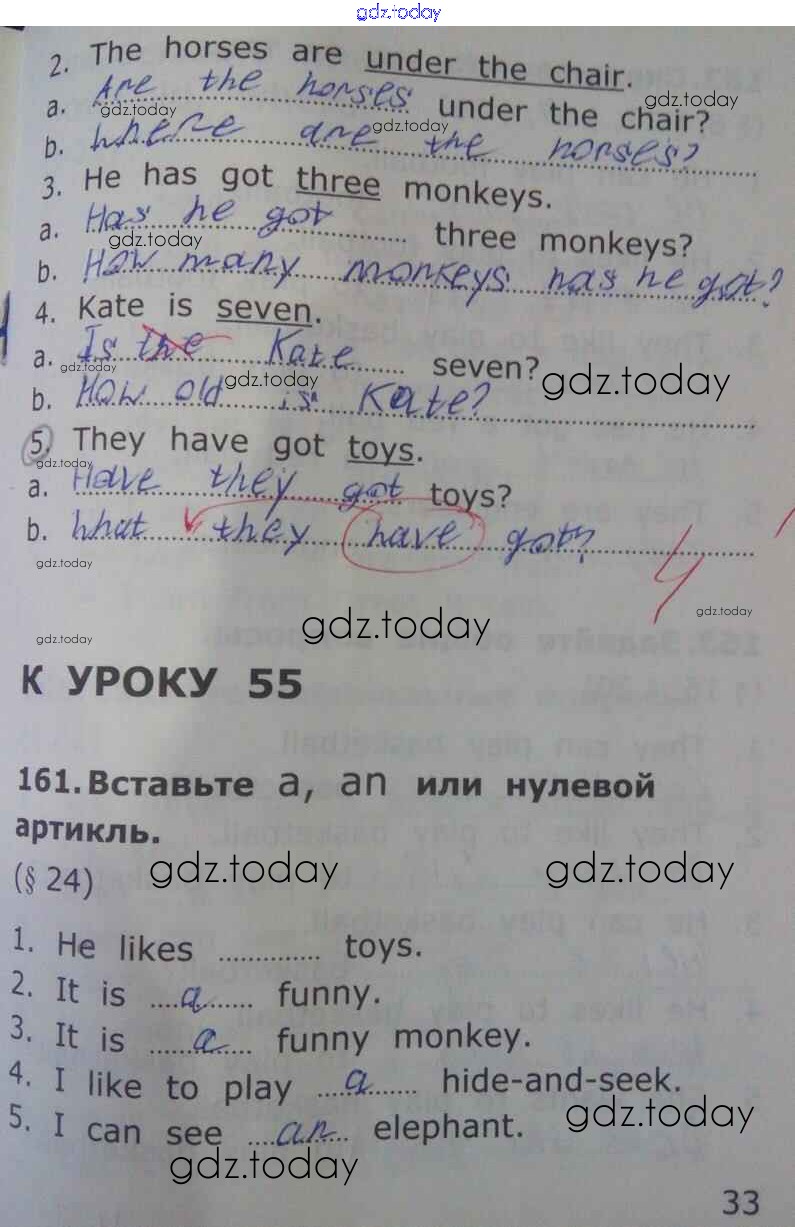 gdz.today
2. The horses are under the chair.
a. Are the horses under the chair?
gdz.today gdz.today gdz.today
b. where are the horses?
3. He has got three monkeys.
a. Has he got three monkeys?
gdz.today
b. How many monkeys has he got?
4. Kate is seven.
a. Is the Kate seven?
gdz.today gdz.today gdz.today
b. How old is Kate?
5. They have got toys.
gdz.today
a. Have they got toys?
b. what they have got?
gdz.today
gdz.today gdz.today gdz.today
К УРОКУ 55
161. Вставьте a, an или нулевой
артикль.
(§ 24)
gdz.today gdz.today
1. He likes ............. toys.
2. It is a funny.
3. It is a funny monkey.
4. I like to play a hide-and-seek.
5. I can see an elephant.
gdz.today
gdz.today
33